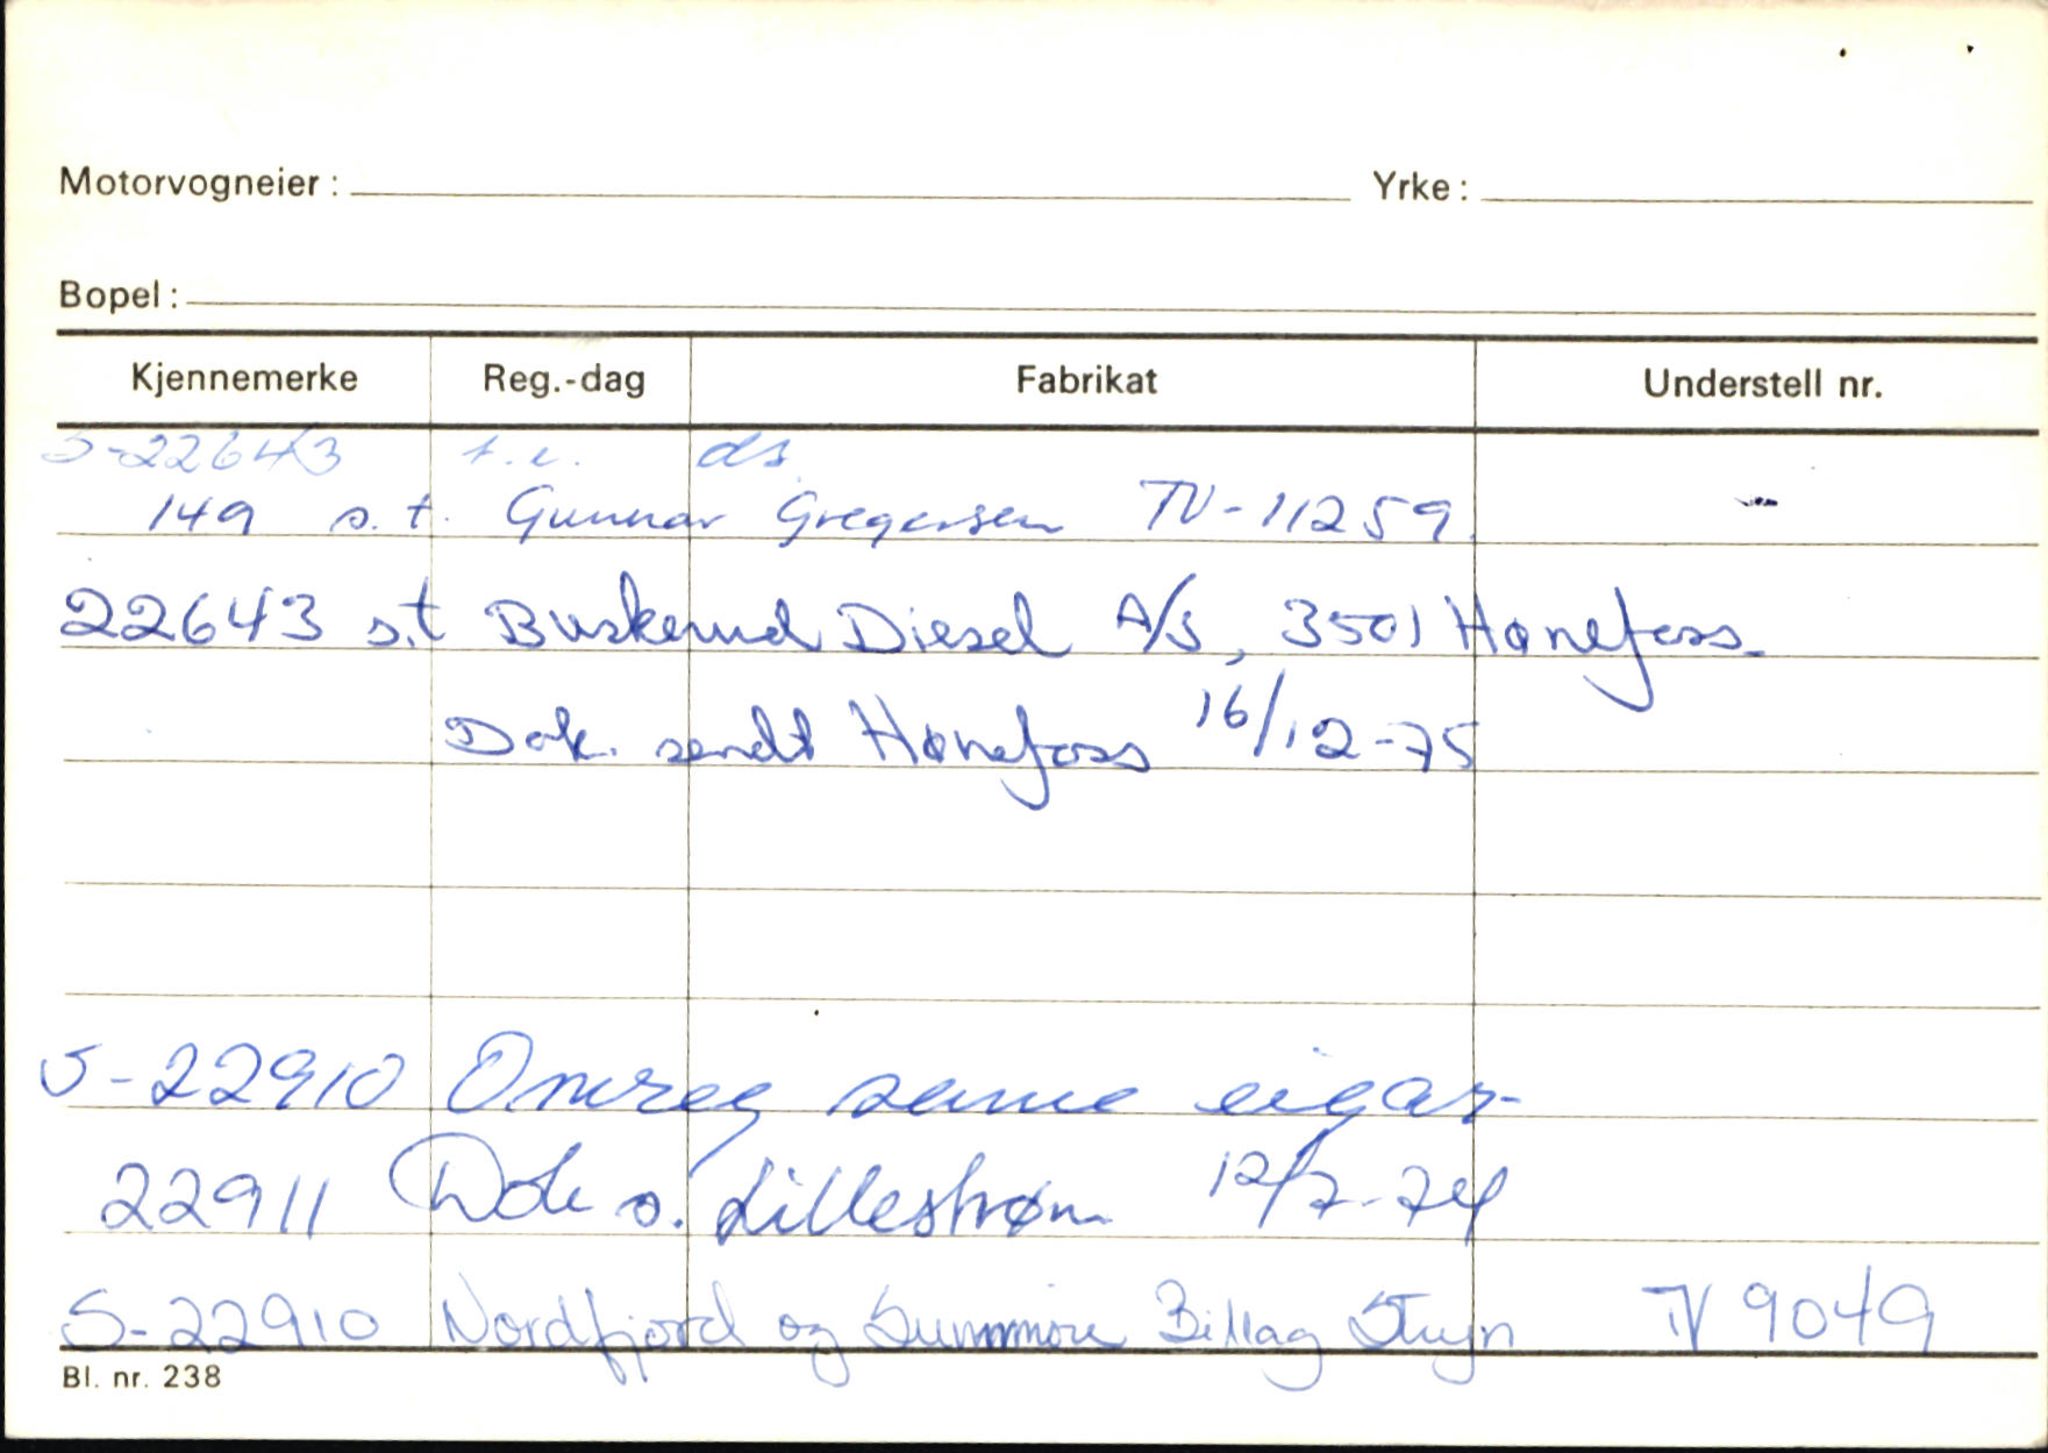 Motorvogneier: Yrke:
Bopel:
Kjennemerke Reg.-dag Fabrikat Understell nr.
S-22643 s.e. ds
149 s.t. Gunnar Gregersen TV-11259
22643 s.t Buskerud Diesel A/S, 3501 Hønefoss.
Dok. sendt Hønefoss 16/12-75
S-22910 Omreg same eigar
22911 Dok s. Lillestrøm 12/7-74
S-22910 Nordfjord og Sunnmøre Billag Stryn TV 9049
Bl. nr. 238